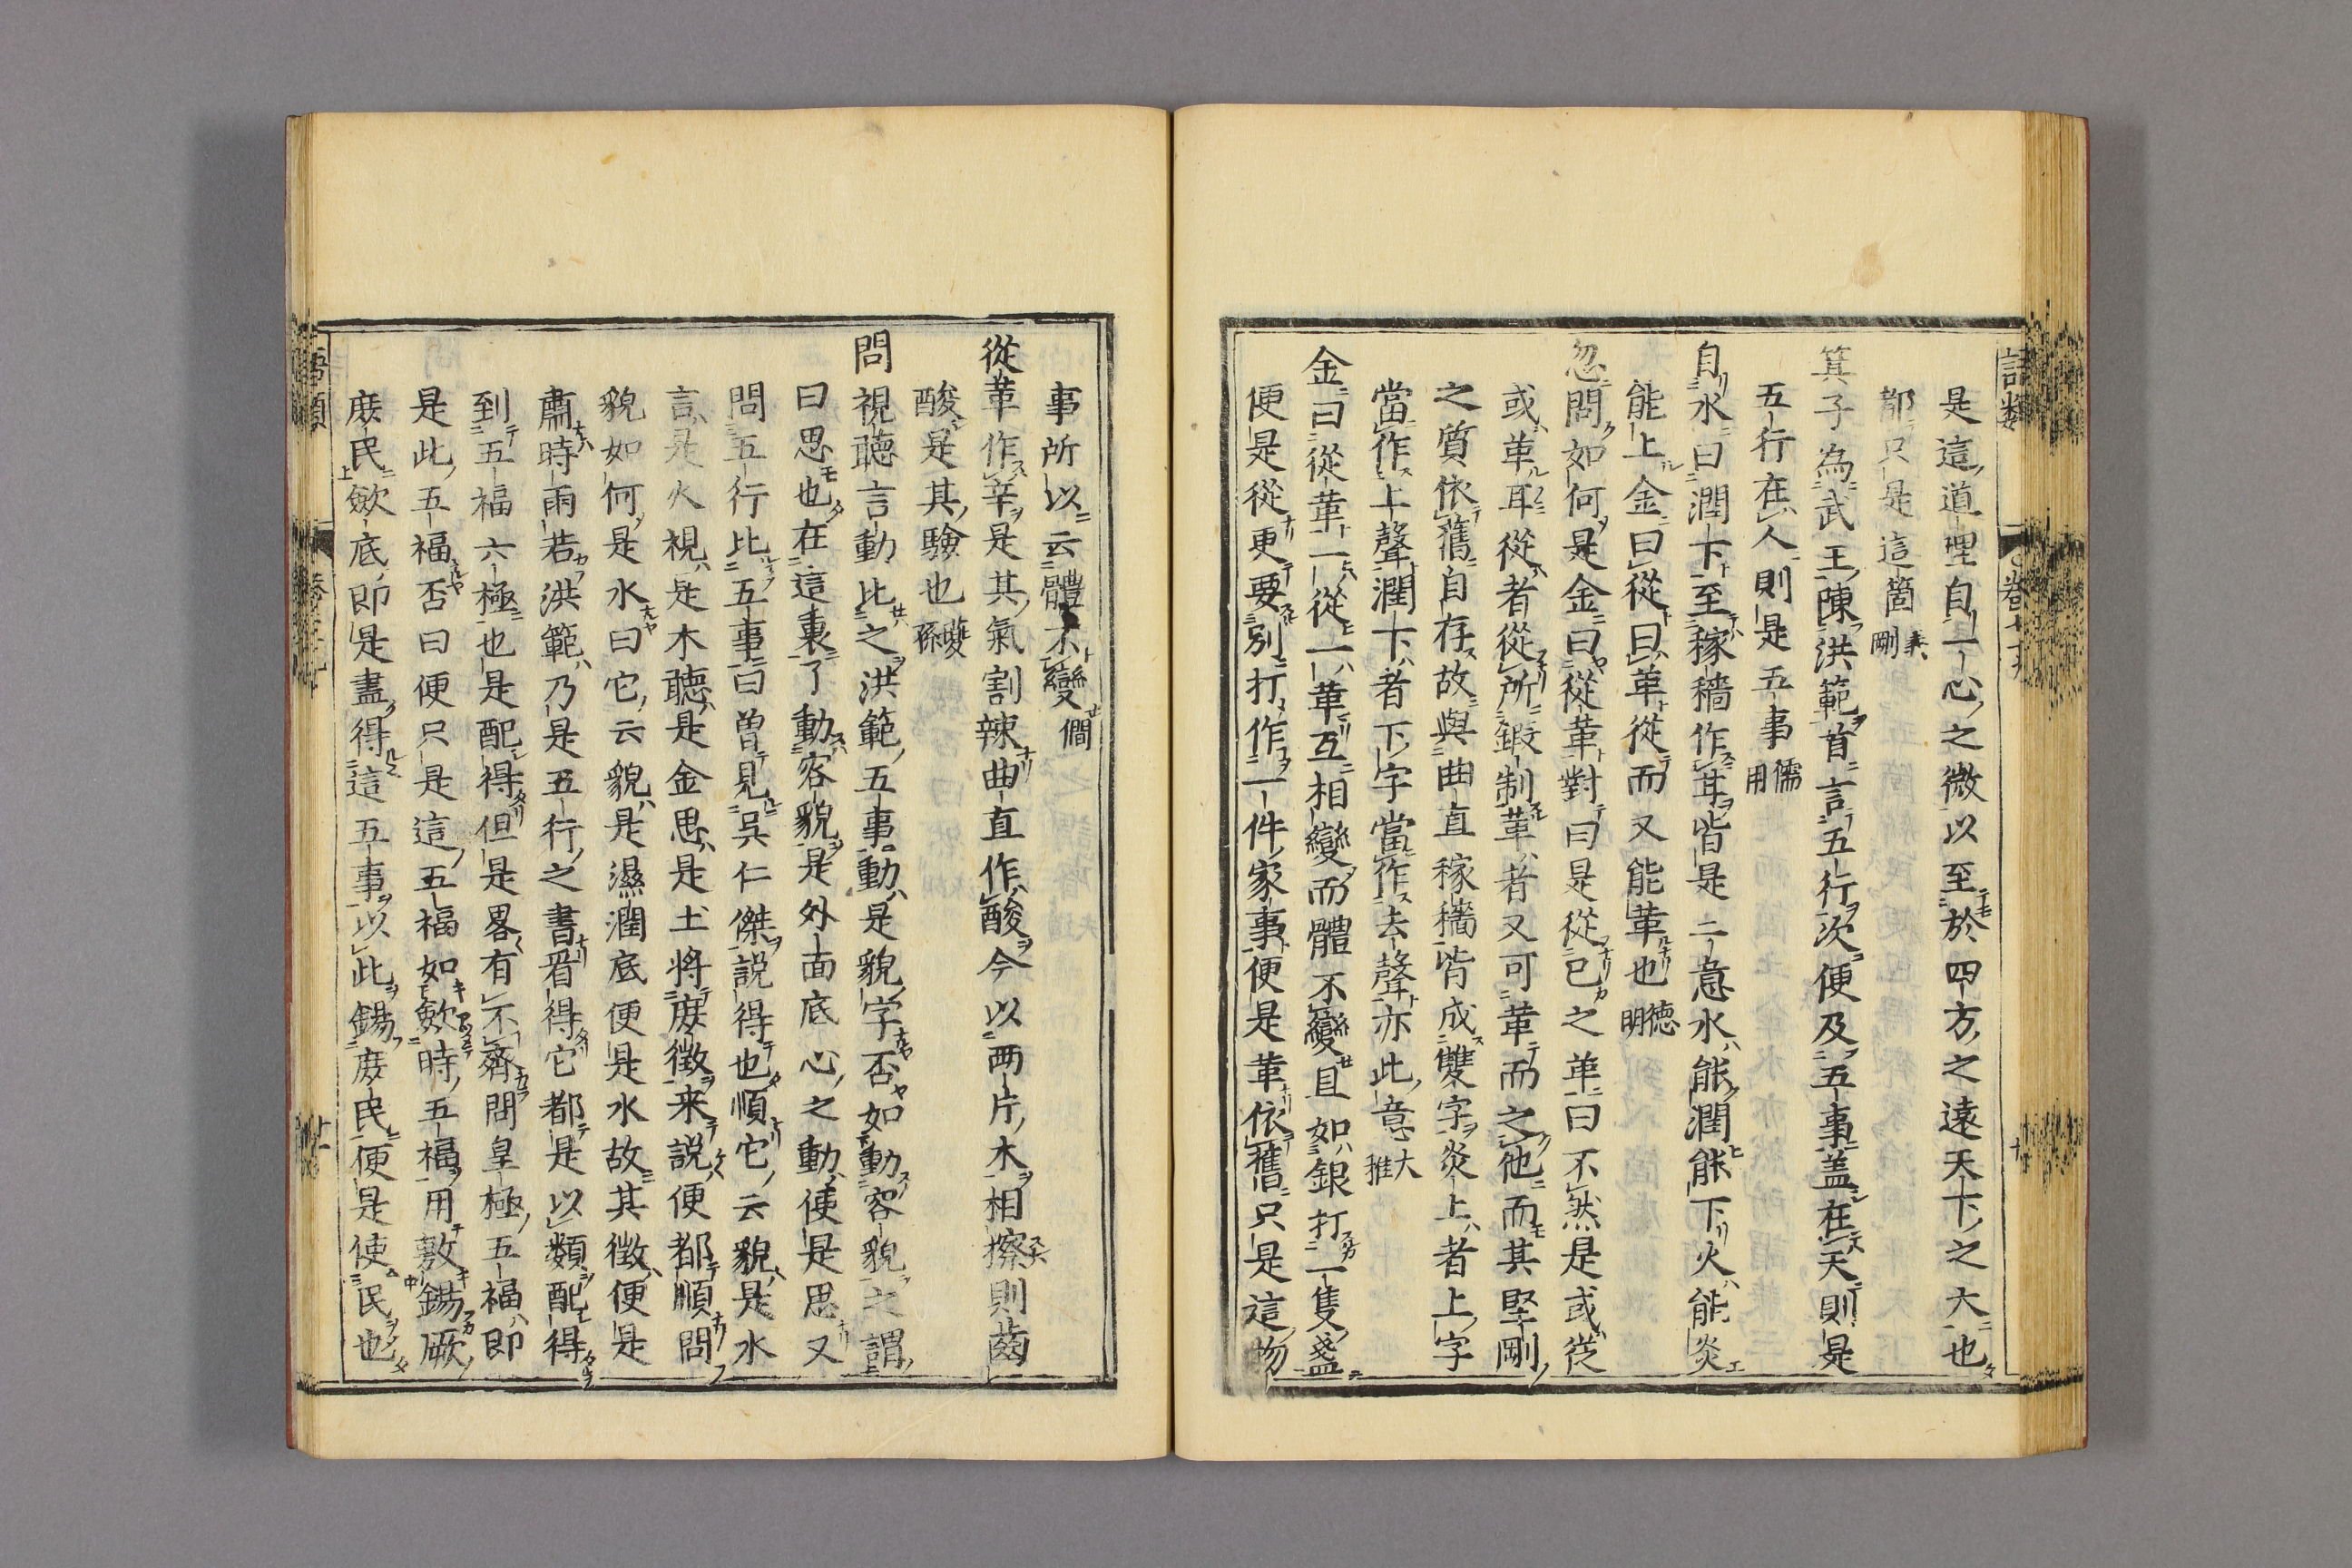 語類
卷七十九
十
是這道理自一心之微以至於四方之遠天下之大也
都只是這箇義剛
箕子為武王陳洪範首言五行次便及五事盖在天則是
五行在人則是五事儒用
自水曰潤下至稼穡作甘皆是二意水能潤能下火能炎
能上金曰從曰革從而又能革也德明
忽問如何是金曰從革對曰是從已之革曰不然是或從
或革耳從者從所鍛制革者又可革而之他而其堅剛
之質依舊自存故與曲直稼穡皆成雙字炎上者上字
當作上聲潤下者下字當作去聲亦此意大雅
金曰從革一從一革互相變而體不變且如銀打一隻盞
便是從更要別打作一件家事便是革依舊只是這物
事所以云體不變僩
從革作辛是其氣割辣曲直作酸今以两片木相擦則齒
酸是其驗也夔孫
問視聽言動比之洪範五事動是貌字否如動容貌之謂
曰思也在這裏了動容貌是外面底心之動便是思又
問五行比五事曰曾見吳仁傑說得也順它云貌是水
言是火視是木聽是金思是土將庶徵来說便都順問
貌如何是水曰它云貌是濕潤底便是水故其徵便是
肅時雨若洪範乃是五行之書看得它都是以類配得
到五福六極也是配得但是畧有不齊問皇極五福即
是此五福否曰便只是這五福如歛時五福用敷錫厥
庶民歛底即是盡得這五事以此錫庶民便是使民也
語類
十一